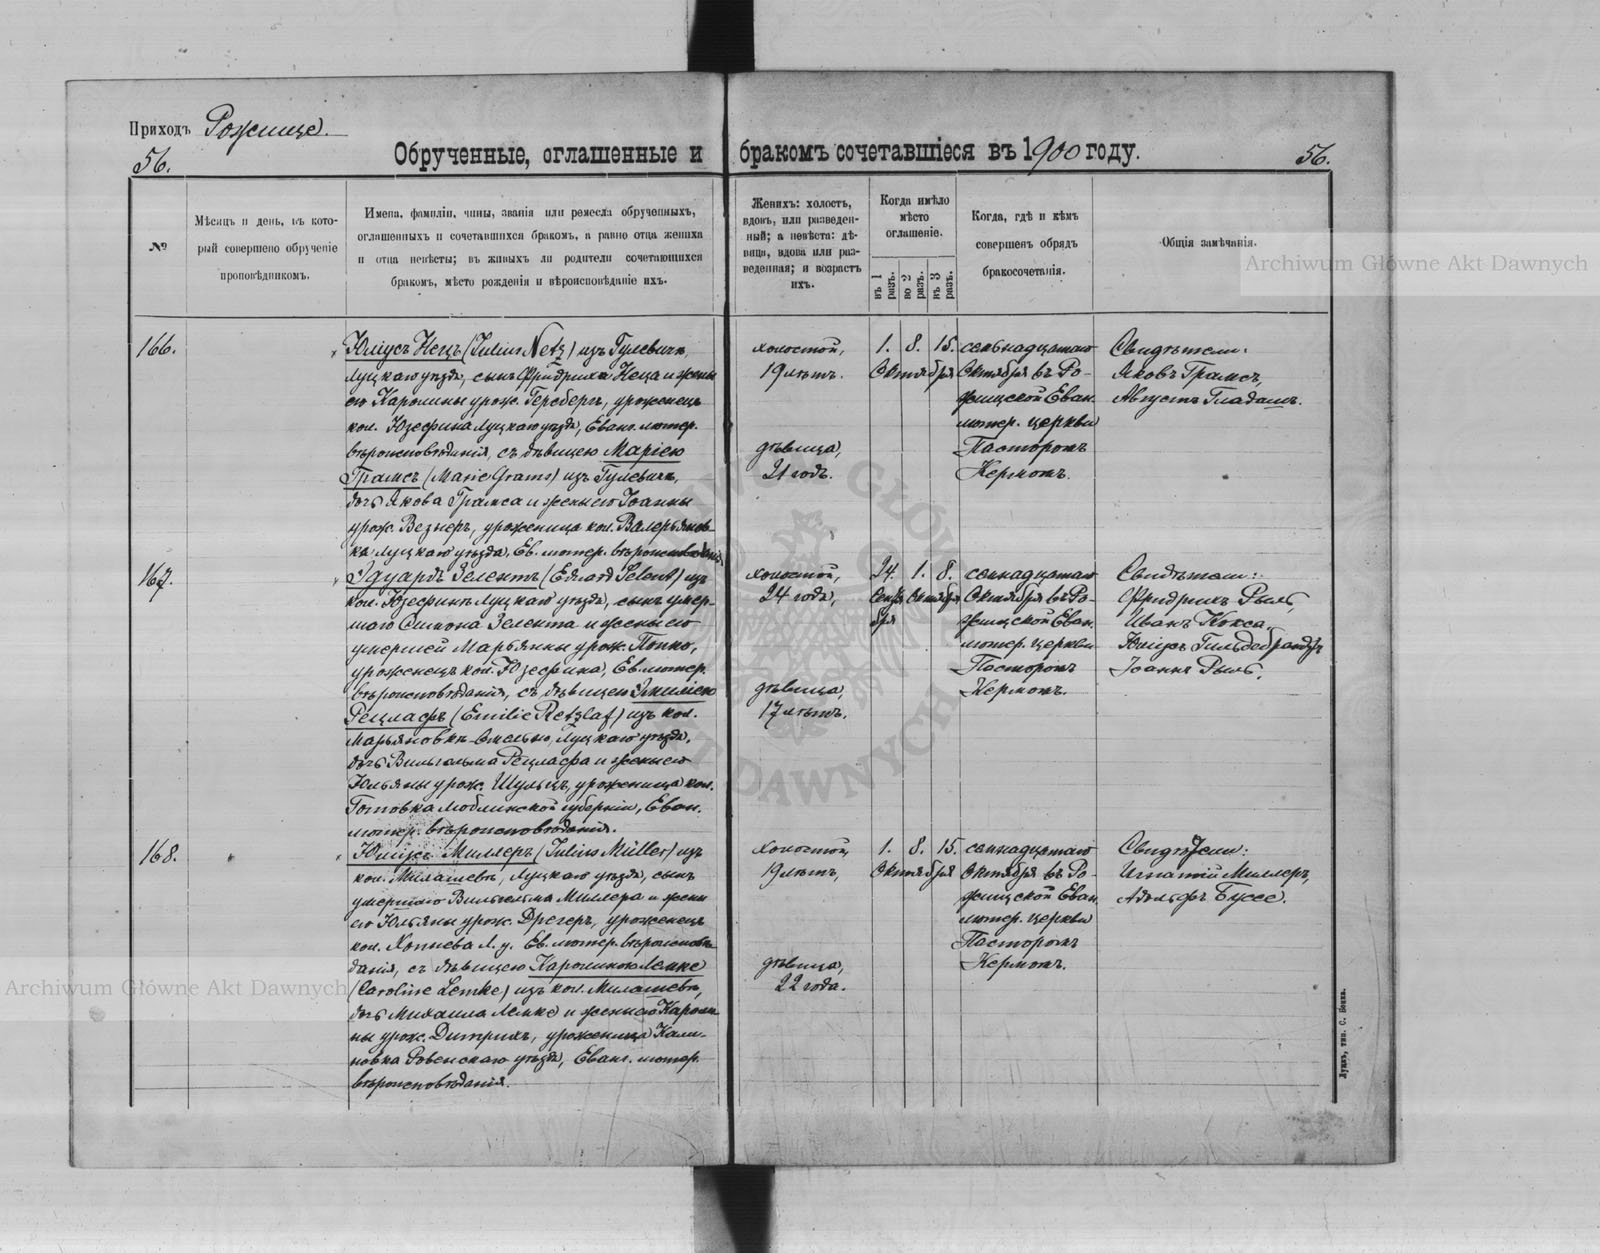 Приходъ Рожище.
56.
Обрученные, оглашенные и бракомъ сочетавшіеся въ 1900 году.
56.
№
Мѣсяцъ и день, въ кото-
рый совершено обрученіе
проповѣдникомъ.
Имена, фамиліи, чины, званія или ремесла обрученныхъ,
оглашенныхъ и сочетавшихся бракомъ, а равно отца жениха
и отца невѣсты; въ живыхъ ли родители сочетающихся
бракомъ, мѣсто рожденія и вѣроисповѣданіе ихъ.
Женихъ: холостъ,
вдовъ, или разведен-
ный; а невѣста: дѣ-
вица, вдова или раз-
веденная; и возрастъ
ихъ.
Когда имѣло
мѣсто
оглашеніе.
въ 1 разъ.
во 2 разъ.
въ 3 разъ.
Когда, гдѣ и кѣмъ
совершенъ обрядъ
бракосочетанія.
Общія замѣчанія.
Archiwum Główne Akt Dawnych
166.
Юліусъ Нецъ (Julius Netz) изъ Гулевичъ,
Луцкаго уѣзда, сынъ Фридриха Неца и жены
его Каролины урож. Герсбергъ, уроженецъ
кол. Юзефина Луцкаго уѣзда, Еванг. лютер.
вѣроисповѣданія, съ дѣвицею Маріею
Грамсъ (Marie Grams) изъ Гулевичъ,
дочь Якова Грамса и жены его Іоанны
урож. Везнеръ, уроженица кол. Валерьянов-
ка Луцкаго уѣзда, Ев. лютер. вѣроисповѣданія
холостой,
19 лѣтъ.
дѣвица,
21 годъ.
1. 8. 15.
Октября
семнадцатаго
Октября въ Ро-
жищской Еван.
лютер. церкви
Пасторомъ
Кермомъ.
Свидѣтели:
Яковъ Грамсъ,
Августъ Гладашъ.
167.
Эдуардъ Зелентъ (Eduard Selent) изъ
кол. Юзефинъ Луцкаго уѣзда, сынъ умер-
шаго Симона Зелента и жены его
умершей Марьянны урож. Попко,
уроженецъ кол. Юзефина, Ев. лютер.
вѣроисповѣданія, съ дѣвицею Эмиліею
Рецлафъ (Emilie Retzlaf) изъ кол.
Марьяновкъ Луцкаго уѣзда,
дочь Вильгельма Рецлафа и жены его
Юльяны урож. Шульцъ, уроженица кол.
Готовка Люблинской губерніи, Еван.
лютер. вѣроисповѣданія.
холостой,
24 года,
дѣвица,
17 лѣтъ.
24. 1. 8.
Сентя- Октября
бря
семнадцатаго
Октября въ Ро-
жищской Еван.
лютер. церкви
Пасторомъ
Кермомъ.
Свидѣтели:
Фридрихъ Рыль,
Иванъ Кокса,
Юліусъ Гильдебрандъ,
Іоаннъ Рыль.
168.
Юліусъ Миллеръ (Julius Müller) изъ
кол. Милашевъ, Луцкаго уѣзда, сынъ
умершаго Вильгельма Миллера и жены
его Юльяны урож. Дрегеръ, уроженецъ
кол. Хопнева Л. у. Ев. лютер. вѣроисповѣ-
данія, съ дѣвицею Каролиною Лемке
(Caroline Lemke) изъ кол. Милашевъ,
дочь Михаила Лемке и жены его Кароли-
ны урож. Дитрихъ, уроженица Кали-
новка Ровенскаго уѣзда, Еванг. лютер.
вѣроисповѣданія.
холостой,
19 лѣтъ,
дѣвица,
22 года.
1. 8. 15.
Октября
семнадцатаго
Октября въ Ро-
жищской Еван.
лютер. церкви
Пасторомъ
Кермомъ.
Свидѣтели:
Игнатій Миллеръ,
Адольфъ Буссе.
Archiwum Główne Akt Dawnych
Луцкъ, тип. С. Бонка.